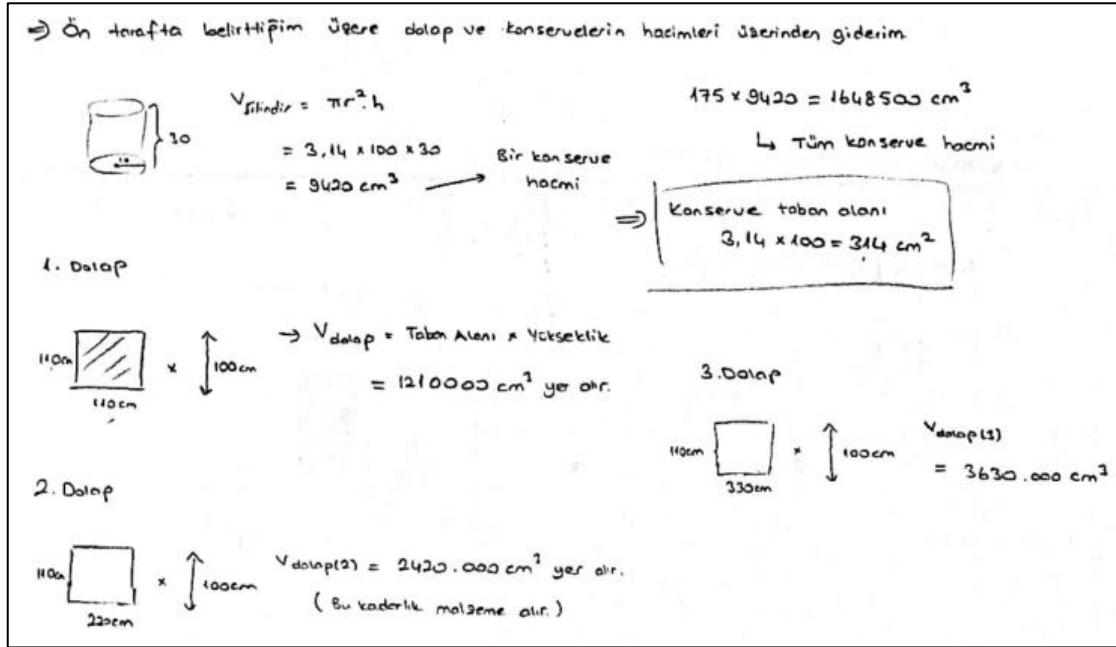 ⇒ Ön tarafta belirttiğim üzere dolap ve konservelerin hacimleri üzerinden giderim.
30
10
Vsilindir = πr².h
= 3,14 x 100 x 30
= 9420 cm³ → Bir konserve hacmi
175 x 9420 = 1648500 cm³
↳ Tüm konserve hacmi
⇒ Konserve taban alanı
3,14 x 100 = 314 cm²
1. Dolap
110cm
110cm
x
100cm
→ Vdolap = Taban Alanı x Yükseklik
= 1210000 cm³ yer alır.
2. Dolap
110cm
220cm
x
100cm
Vdolap(2) = 2420.000 cm³ yer alır.
(Bu kadarlık malzeme alır.)
3. Dolap
110cm
330cm
x
100cm
Vdolap(3)
= 3630.000 cm³